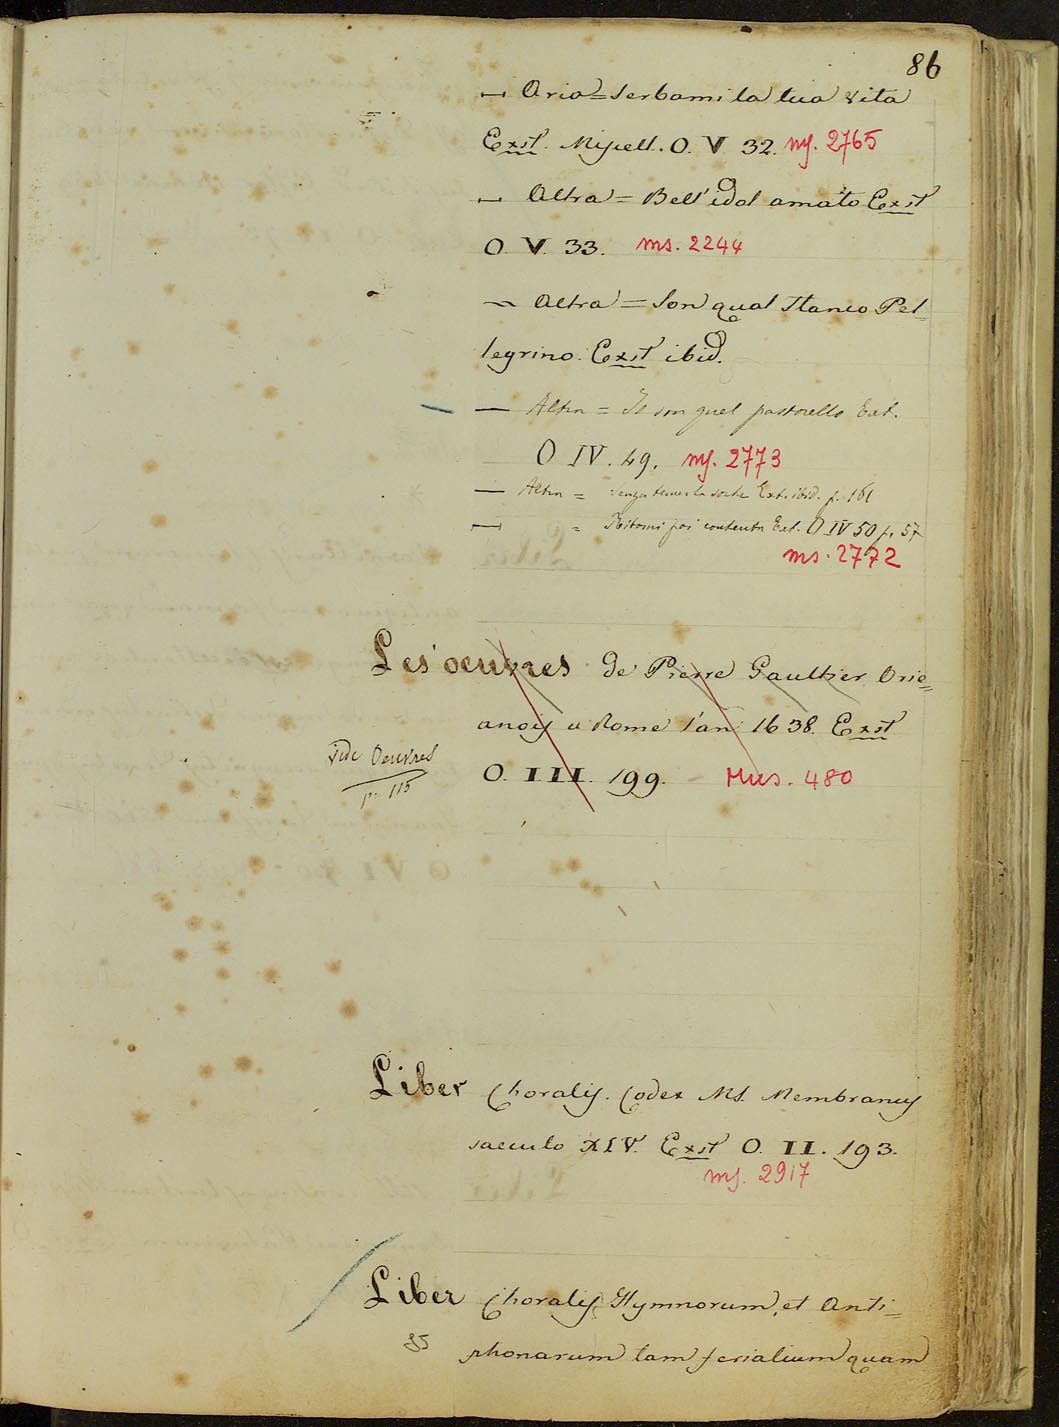 86
— Aria = Serbami la tua vita
Exst. Miscell. O. V. 32. ms. 2765
— Altra = Bell'idol amato Exst
O. V. 33. ms. 2244
— Altra = Son qual Stanco Pel=
legrino. Exst ibid.
— Altra = Io son quel pastorello Ext.
O IV. 49. ms. 2773
— Altra = Senza temer la sorte Ext. ibid. p. 161
— = Ritorni poi contenta Ext. O IV 50 p. 57
ms. 2772
Les oeuvres de Pierre Gaultier Orle=
anois a Rome l'an 1638. Exst
vide Oeuvres
p. 115
O. III. 199. Mus. 480
Liber Choralis. Codex Ms. Membranus
saeculo XIV. Exst O. II. 193.
ms. 2917
Liber Choralis Hymnorum, et Anti=
85
phonarum tam ferialium quam